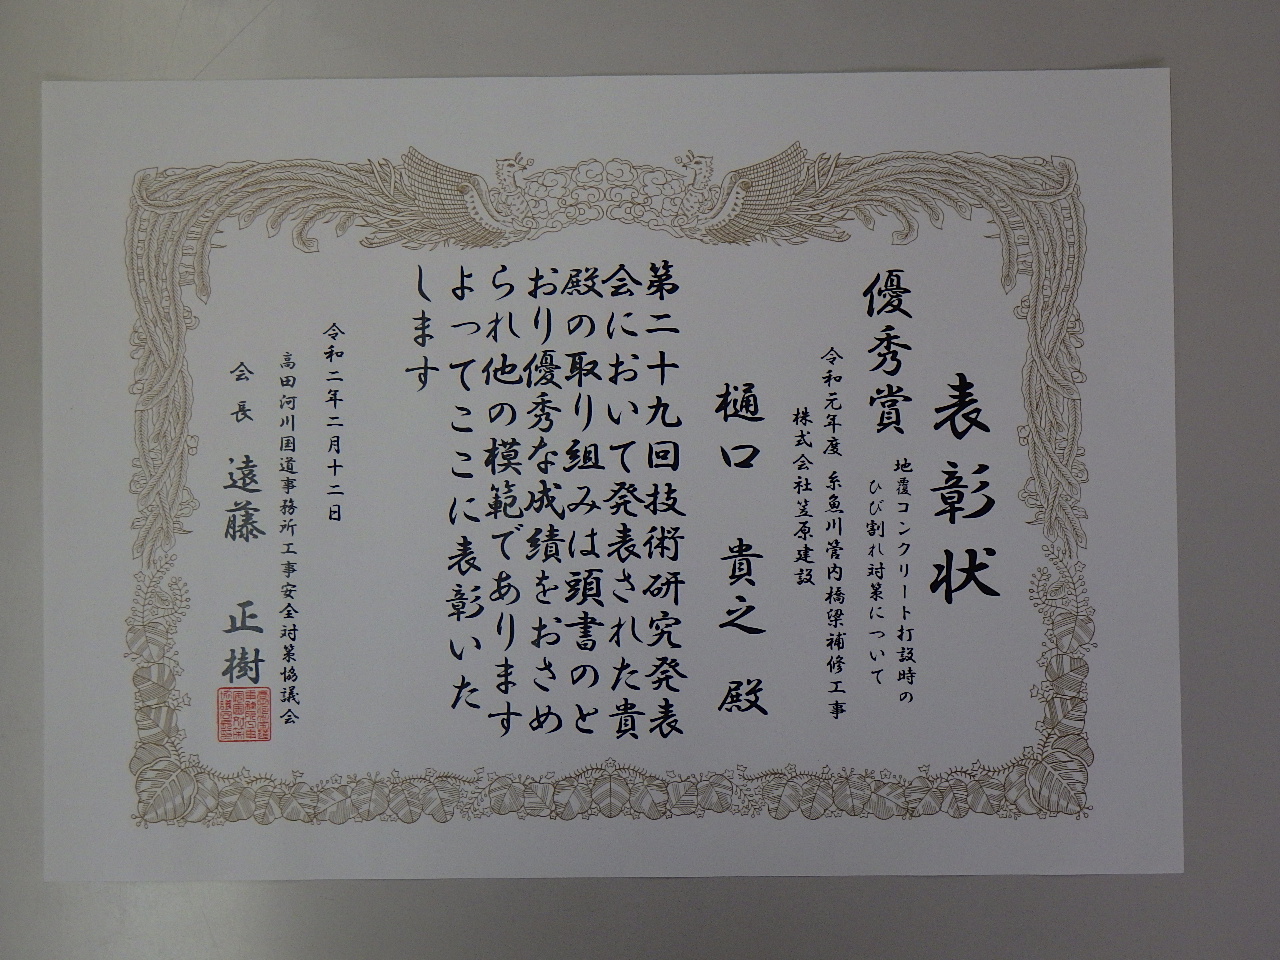 表彰状
優秀賞
地覆コンクリート打設時の
ひび割れ対策について
令和元年度 糸魚川管内橋梁補修工事
株式会社笠原建設
樋口 貴之 殿
第二十九回技術研究発表
会において発表された貴
殿の取り組みは頭書のと
おり優秀な成績をおさめ
られ他の模範であります
よってここに表彰いた
します
令和二年二月十二日
高田河川国道事務所工事安全対策協議会
会長 遠藤 正樹